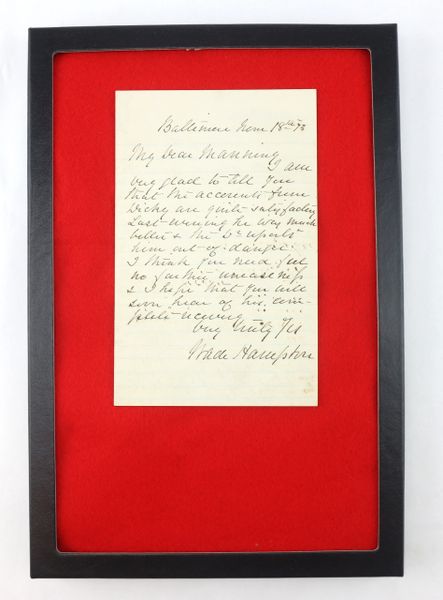 Baltimore Nov 18th 73
My Dear Manning
I am
very glad to tell you
that the accounts from
Dicky are quite satisfactory
Last evening he was much
better & the Dr reports
him out of danger.
I think you need feel
no further uneasiness
& I hope that you will
soon hear of his com-
plete recovery
Very truly Yrs
Wade Hampton